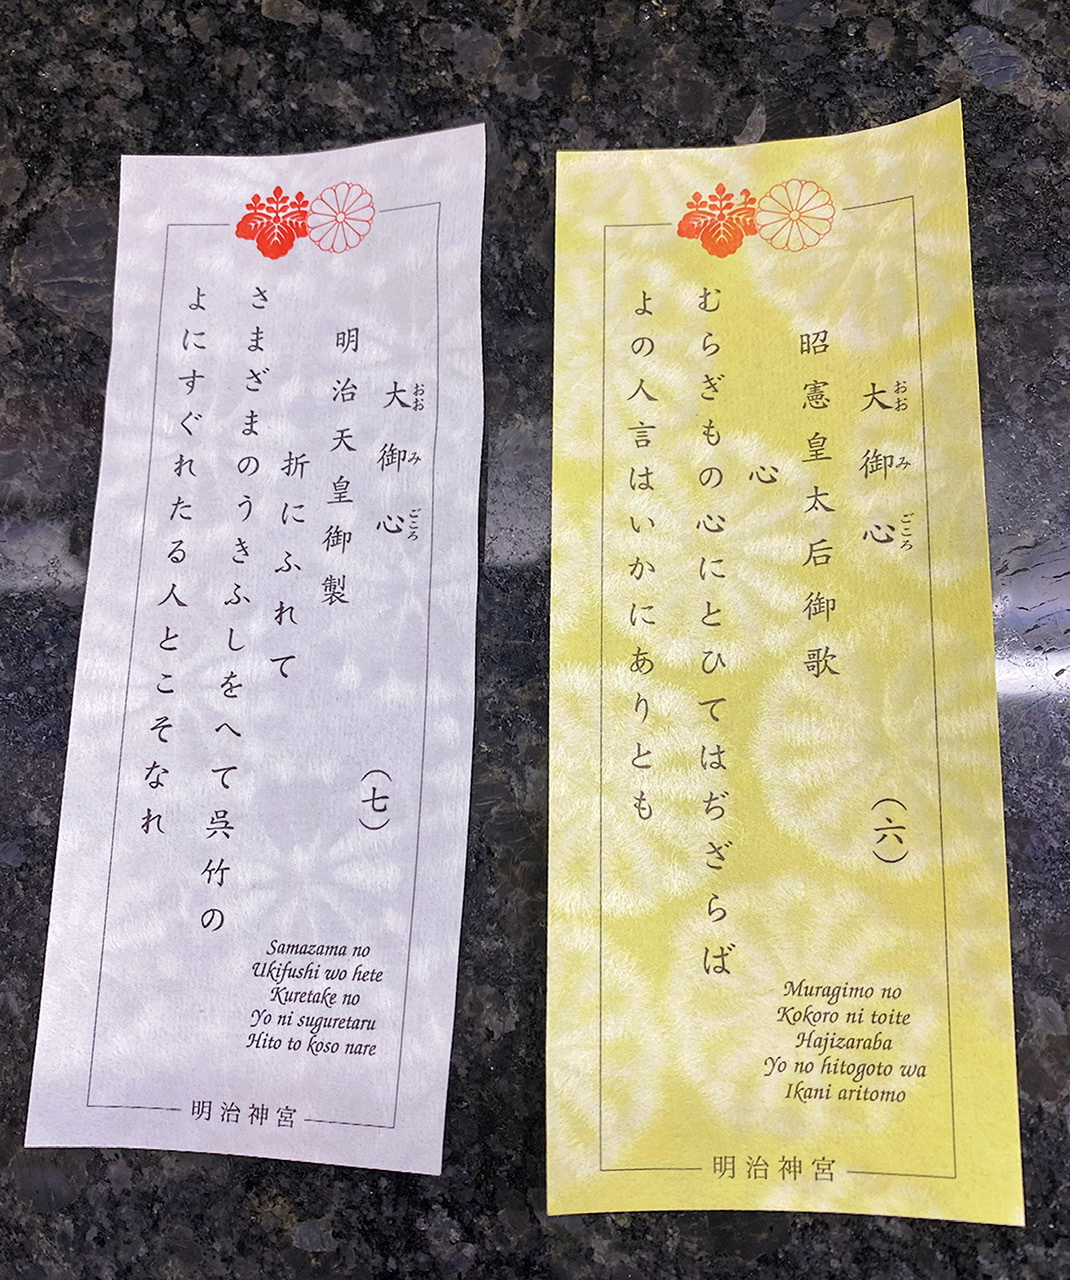 大御心
おお み ごころ
(七)
明治天皇御製
折にふれて
さまざまのうきふしをへて呉竹の
よにすぐれたる人とこそなれ
Samazama no
Ukifushi wo hete
Kuretake no
Yo ni suguretaru
Hito to koso nare
明治神宮
大御心
おお み ごころ
(六)
昭憲皇太后御歌
心
むらぎもの心にとひてはぢざらば
よの人言はいかにありとも
Muragimo no
Kokoro ni toite
Hajizaraba
Yo no hitogoto wa
Ikani aritomo
明治神宮